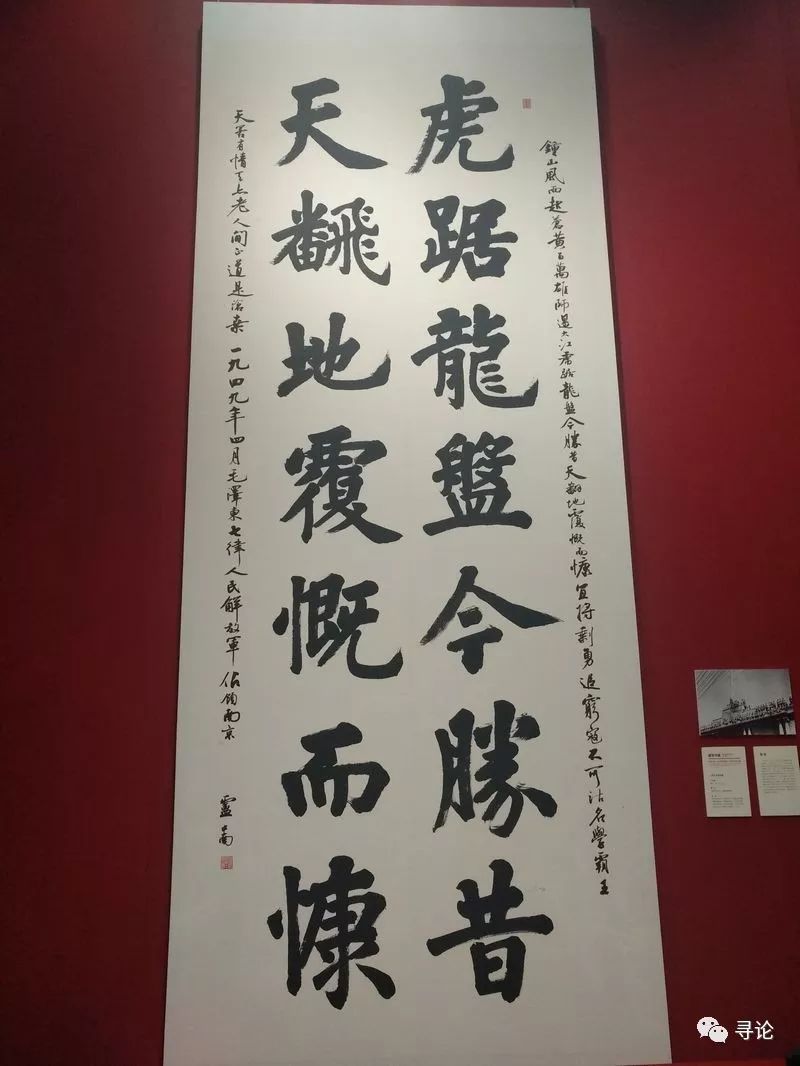 虎踞龍盤今勝昔
天飜地覆慨而慷
鐘山風雨起蒼黄百萬雄師過大江虎踞龍盤今勝昔天翻地覆慨而慷宜將剩勇追窮寇不可沽名學霸王
天若有情天亦老人間正道是滄桑 一九四九年四月毛澤東七律人民解放軍佔領南京
寻论